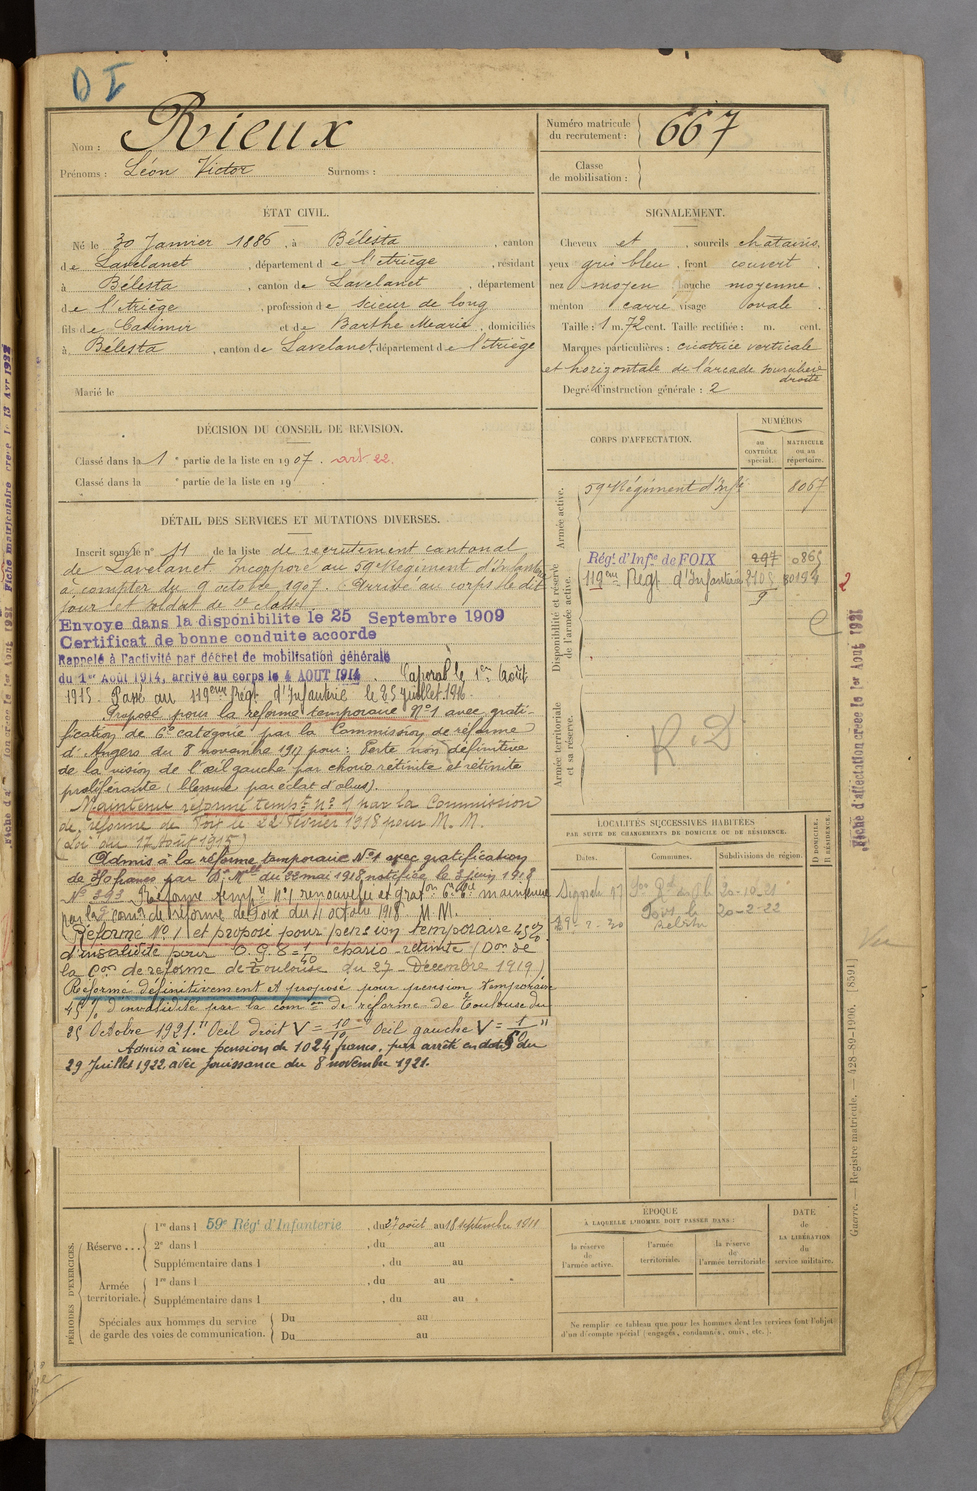 D I
Nom : Rieux
Prénoms : Léon Victor Surnoms :
Numéro matricule
du recrutement : 667
Classe
de mobilisation :
ÉTAT CIVIL.
Né le 30 Janvier 1886, à Bélesta, canton
de Lavelanet, département de l'Ariège, résidant
à Bélesta, canton de Lavelanet, département
de l'Ariège, profession de scieur de long
fils de Casimir et de Barthe Marie, domiciliés
à Bélesta, canton de Lavelanet, département de l'Ariège
Marié le
SIGNALEMENT.
Cheveux et, sourcils chatains,
yeux gris bleu, front couvert
nez moyen, bouche moyenne.
menton carré, visage ovale.
Taille : 1 m. 72 cent. Taille rectifiée : m. cent.
Marques particulières : cicatrice verticale
et horizontale de l'arcade sourcilière
droite
Degré d'instruction générale : 2
DÉCISION DU CONSEIL DE REVISION.
Classé dans la 1e partie de la liste en 1907. art 22.
Classé dans la e partie de la liste en 19 .
DÉTAIL DES SERVICES ET MUTATIONS DIVERSES.
Inscrit sous le n° 11 de la liste de recrutement cantonal
de Lavelanet. Incorporé au 59e Régiment d'Infanterie
à compter du 9 octobre 1907. Arrivé au corps le dit
jour et soldat de 2e classe
Envoye dans la disponibilite le 25 Septembre 1909
Certificat de bonne conduite accorde
Rappelé à l'activité par décret de mobilisation générale
du 1er Août 1914, arrivé au corps le 4 AOUT 1914. Caporal le 1er Août
1915. Passé au 119ème Régt d'Infanterie le 25 juillet 1916.
Proposé pour la réforme temporaire N°1 avec grati-
fication de 6e catégorie par la Commission de réforme
d'Angers du 8 novembre 1917 pour : Perte non définitive
de la vision de l'œil gauche par chorio rétinite et rétinite
proliférante (blessure par éclat d'obus).
Maintenu réformé tempre n° 1 par la Commission
de réforme de Foix le 22 Février 1918 pour M. M.
(Loi du 17 Août 1915)
Admis à la réforme temporaire N°1 avec gratification
de francs par Dn Melle du 22 mai 1918, notifiée le 3 juin 1918
N° 393 Réforme tempre n°1 renouvelée et graton 6e Cie maintenue
par la com. de réforme de Foix du 11 octobre 1918 M M.
Réformé N° 1 et proposé pour pension temporaire 45%
d'invalidité pour O. G. 8 = 1/40 chorio-rétinite (Don de
la Con de réforme de Toulouse du 27 Décembre 1919)
Réformé définitivement et proposé pour pension temporaire
45 % d'invalidité par la comon de réforme de Toulouse du
25 Octobre 1921. "Oeil droit V = 10/10 Oeil gauche V = 1/50"
Admis à une pension de 1024 francs, par arrêté en date du
29 Juillet 1922 avec jouissance du 8 novembre 1921.
CORPS D'AFFECTATION.
NUMÉROS
au
CONTRÔLE
spécial.
MATRICULE
ou au
répertoire.
Armée active.
59e Régiment d'Infie 8067
Disponibilité et réserve
de l'armée active.
Régt. d'Infie de FOIX 297 0865
119ème Régt d'Infanterie
2
Armée territoriale
et sa réserve.
R. D
LOCALITÉS SUCCESSIVES HABITÉES
PAR SUITE DE CHANGEMENTS DE DOMICILE OU DE RÉSIDENCE.
Dates.
Communes.
Subdivisions de région.
D DOMICILE.
R RÉSIDENCE.
20-10-21
20-2-22
Bélesta
PÉRIODES D'EXERCICES.
Réserve...
1re dans l 59e Régt d'Infanterie, du 27 août au 18 septembre 1911
2e dans l , du au
Supplémentaire dans l , du au
Armée
territoriale.
1re dans l , du au
Supplémentaire dans l , du au
Spéciales aux hommes du service
de garde des voies de communication.
Du au
Du au
ÉPOQUE
À LAQUELLE L'HOMME DOIT PASSER DANS :
la réserve
de
l'armée active.
l'armée
territoriale.
la réserve
de
l'armée territoriale
DATE
de
LA LIBÉRATION
du
service militaire.
Ne remplir ce tableau que pour les hommes dont les services font l'objet
d'un décompte spécial (engagés, condamnés, omis, etc.).
Guerre. — Registre matricule. — 428-89-1906. [8591]
Fiche d'affectation créée le 1er Aout 1931
Fiche matriculaire créée le 13 Avr 1922